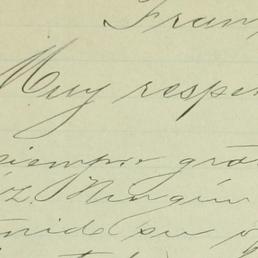 Fran
Muy respe
siempre gra
z. Ningún
enido su